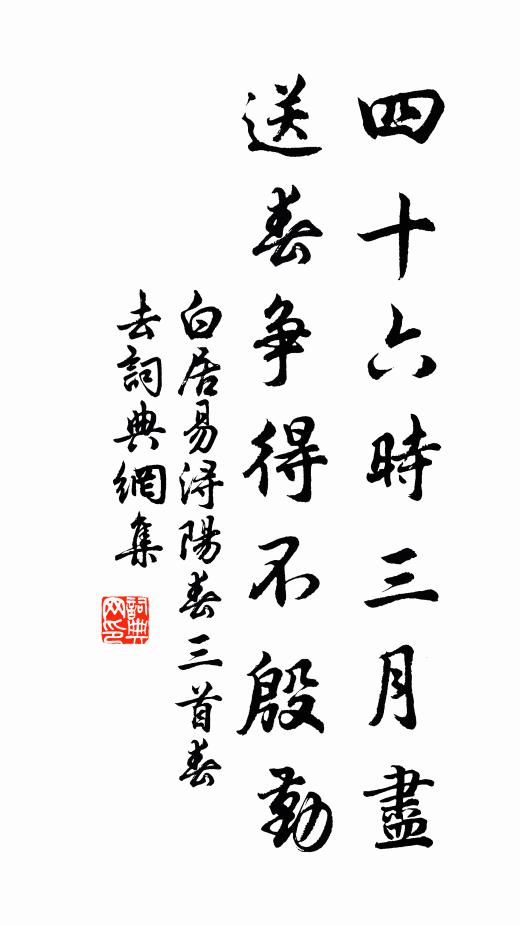 四十六時三月盡
送春争得不殷勤
白居易潯陽春三首春
去詞典網集
詞典
网印